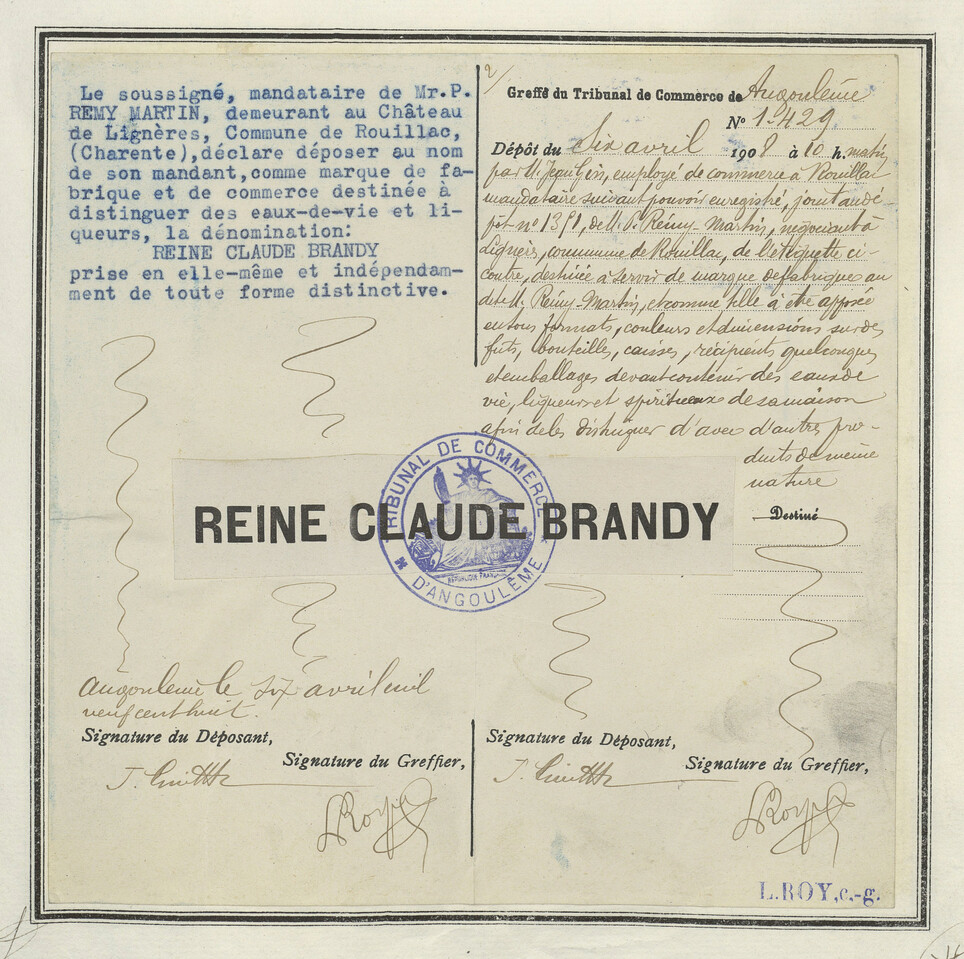 Le soussigné, mandataire de Mr.P.
REMY MARTIN, demeurant au Château
de Lignères, Commune de Rouillac,
(Charente),déclare déposer au nom
de son mandant,comme marque de fa-
brique et de commerce destinée à
distinguer des eaux-de-vie et li-
queurs, la dénomination:
REINE CLAUDE BRANDY
prise en elle-même et indépendam-
ment de toute forme distinctive.
2/
Greffe du Tribunal de Commerce de Angoulême
N° 1.429
Dépôt du Six avril 1908 à 10 h. matin
par M. Jean employé de commerce à Rouillac
mandataire suivant pouvoir enregistré, joint au dé-
pôt n° 1391, de M. P. Rémy-Martin, négociant à
Lignères, commune de Rouillac, de l'étiquette ci-
contre, destinée à servir de marque de fabrique au
dit M. Rémy-Martin, et comme telle à être apposée
en tous formats, couleurs et dimensions sur des
futs, bouteilles, caisses, récipients quelconques
et emballages devant contenir des eaux de
vie, liqueurs et spiritueux de sa maison
afin de les distinguer d'avec d'autres pro-
duits de même
nature
Destiné
REINE CLAUDE BRANDY
TRIBUNAL DE COMMERCE
RÉPUBLIQUE FRANÇAISE
D'ANGOULÊME
Angoulême le six avril mil
neuf cent huit.
Signature du Déposant,
Signature du Greffier,
LRoy
Signature du Déposant,
Signature du Greffier,
LRoy
L.ROY,c.-g.